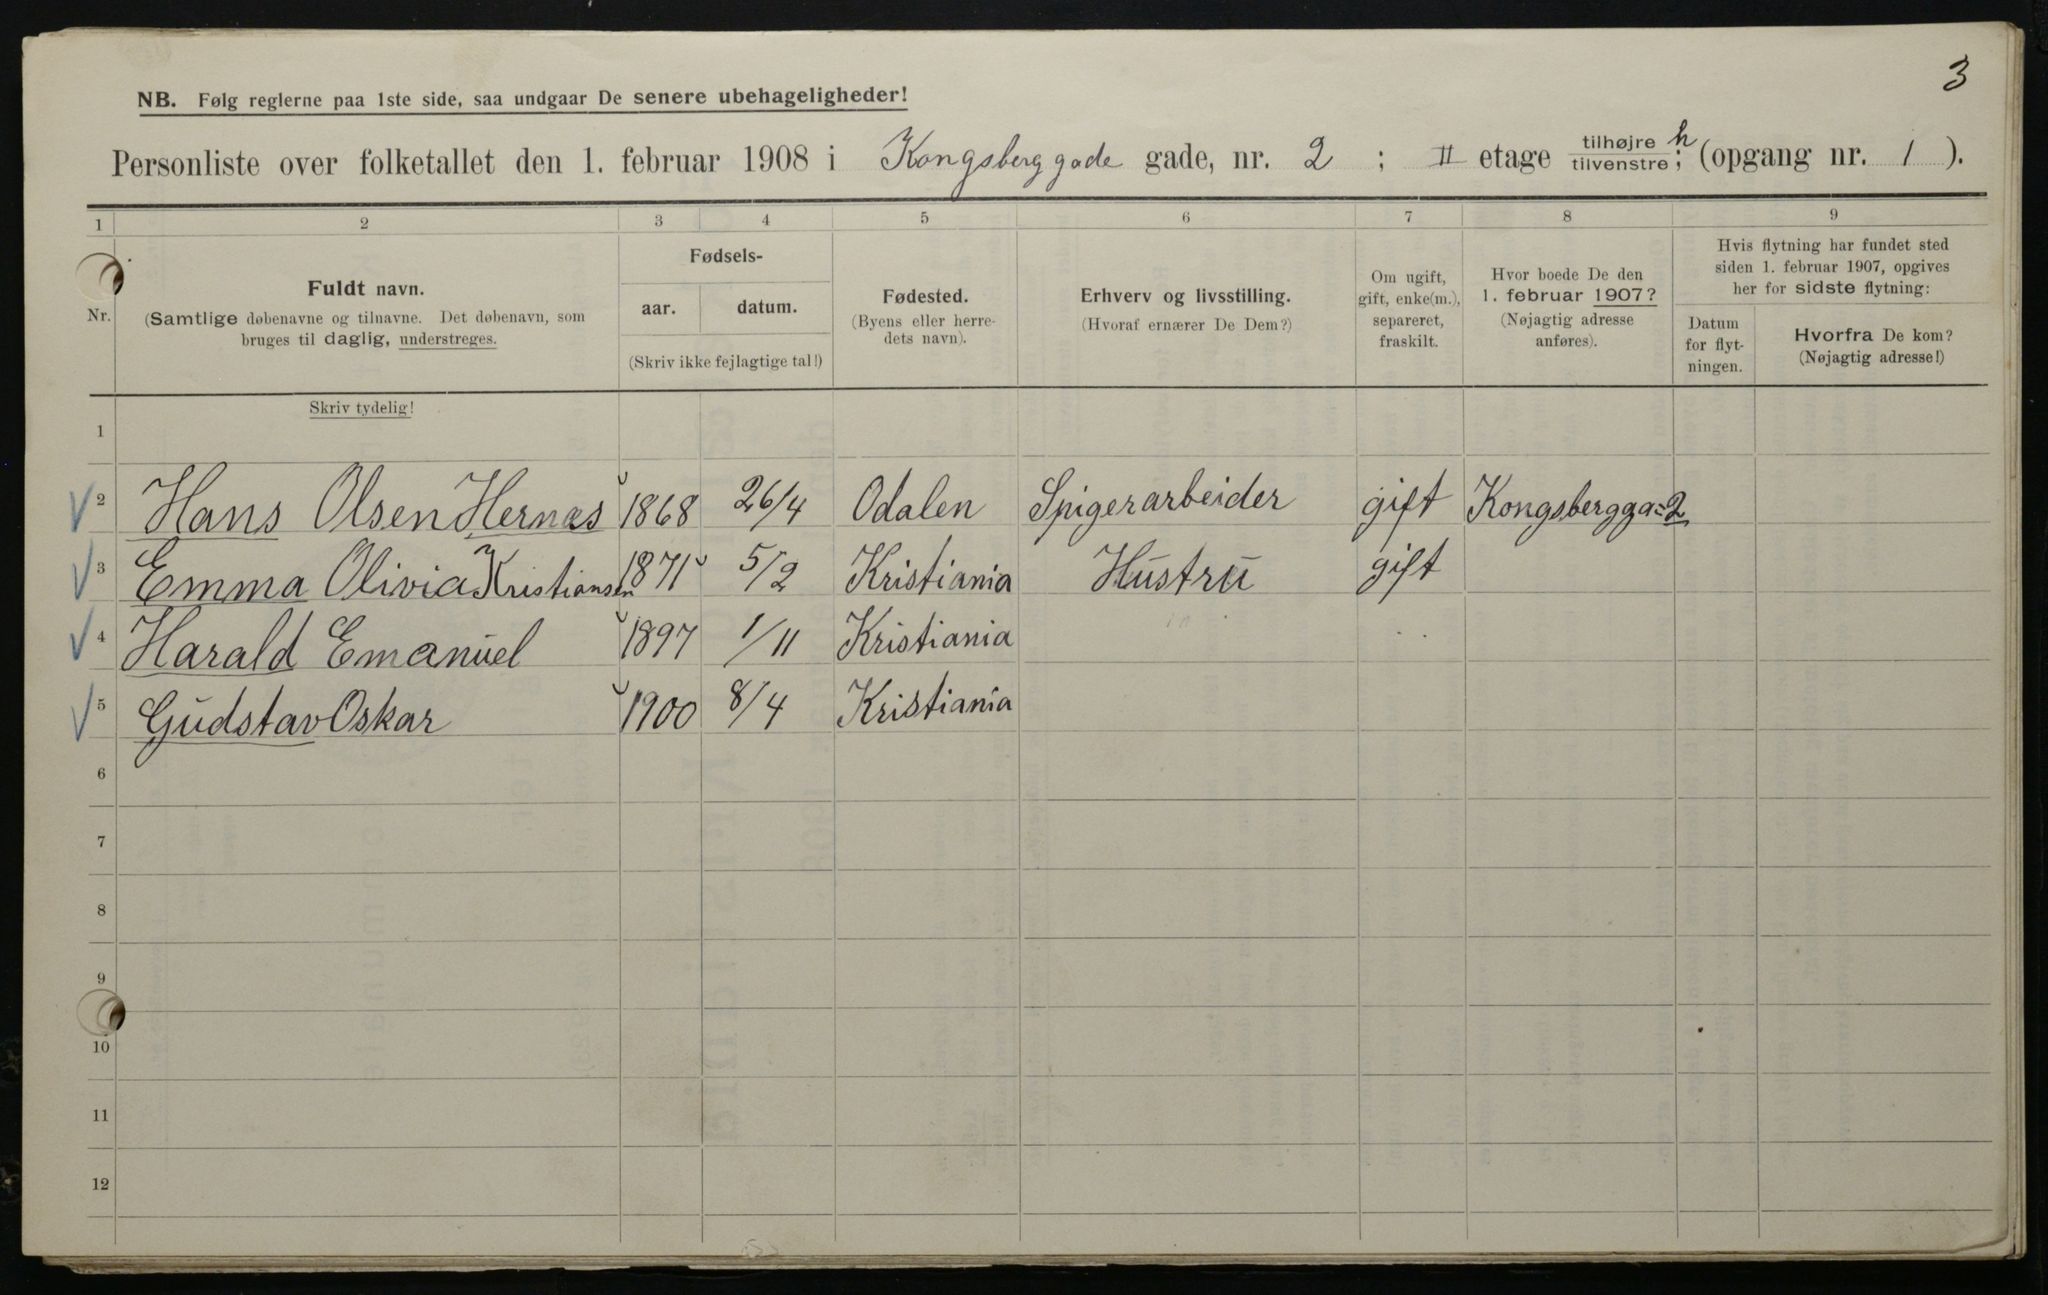 3
NB. Følg reglerne paa 1ste side, saa undgaar De senere ubehageligheder!
Personliste over folketallet den 1. februar 1908 i Kongsberggade gade, nr. 2 ; II etage tilhøjre/tilvenstre; h (opgang nr. 1 ).
1 2 3 4 5 6 7 8 9
Nr.
Fuldt navn.
(Samtlige døbenavne og tilnavne. Det døbenavn, som
bruges til daglig, understreges.
Fødsels-
aar. datum.
(Skriv ikke fejlagtige tal!)
Fødested.
(Byens eller herre-
dets navn).
Erhverv og livsstilling.
(Hvoraf ernærer De Dem?)
Om ugift,
gift, enke(m.),
separeret,
fraskilt.
Hvor boede De den
1. februar 1907?
(Nøjagtig adresse
anføres).
Hvis flytning har fundet sted
siden 1. februar 1907, opgives
her for sidste flytning:
Datum
for flyt-
ningen.
Hvorfra De kom?
(Nøjagtig adresse!)
Skriv tydelig!
1
2 Hans Olsen Hernæs 1868 26/4 Odalen Spigerarbeider gift Kongsbergga=2
3 Emma Olivia Kristiansen 1871 5/2 Kristiania Hustru gift
4 Harald Emanuel 1897 1/11 Kristiania
5 Gudstav Oskar 1900 8/4 Kristiania
6
7
8
9
10
11
12